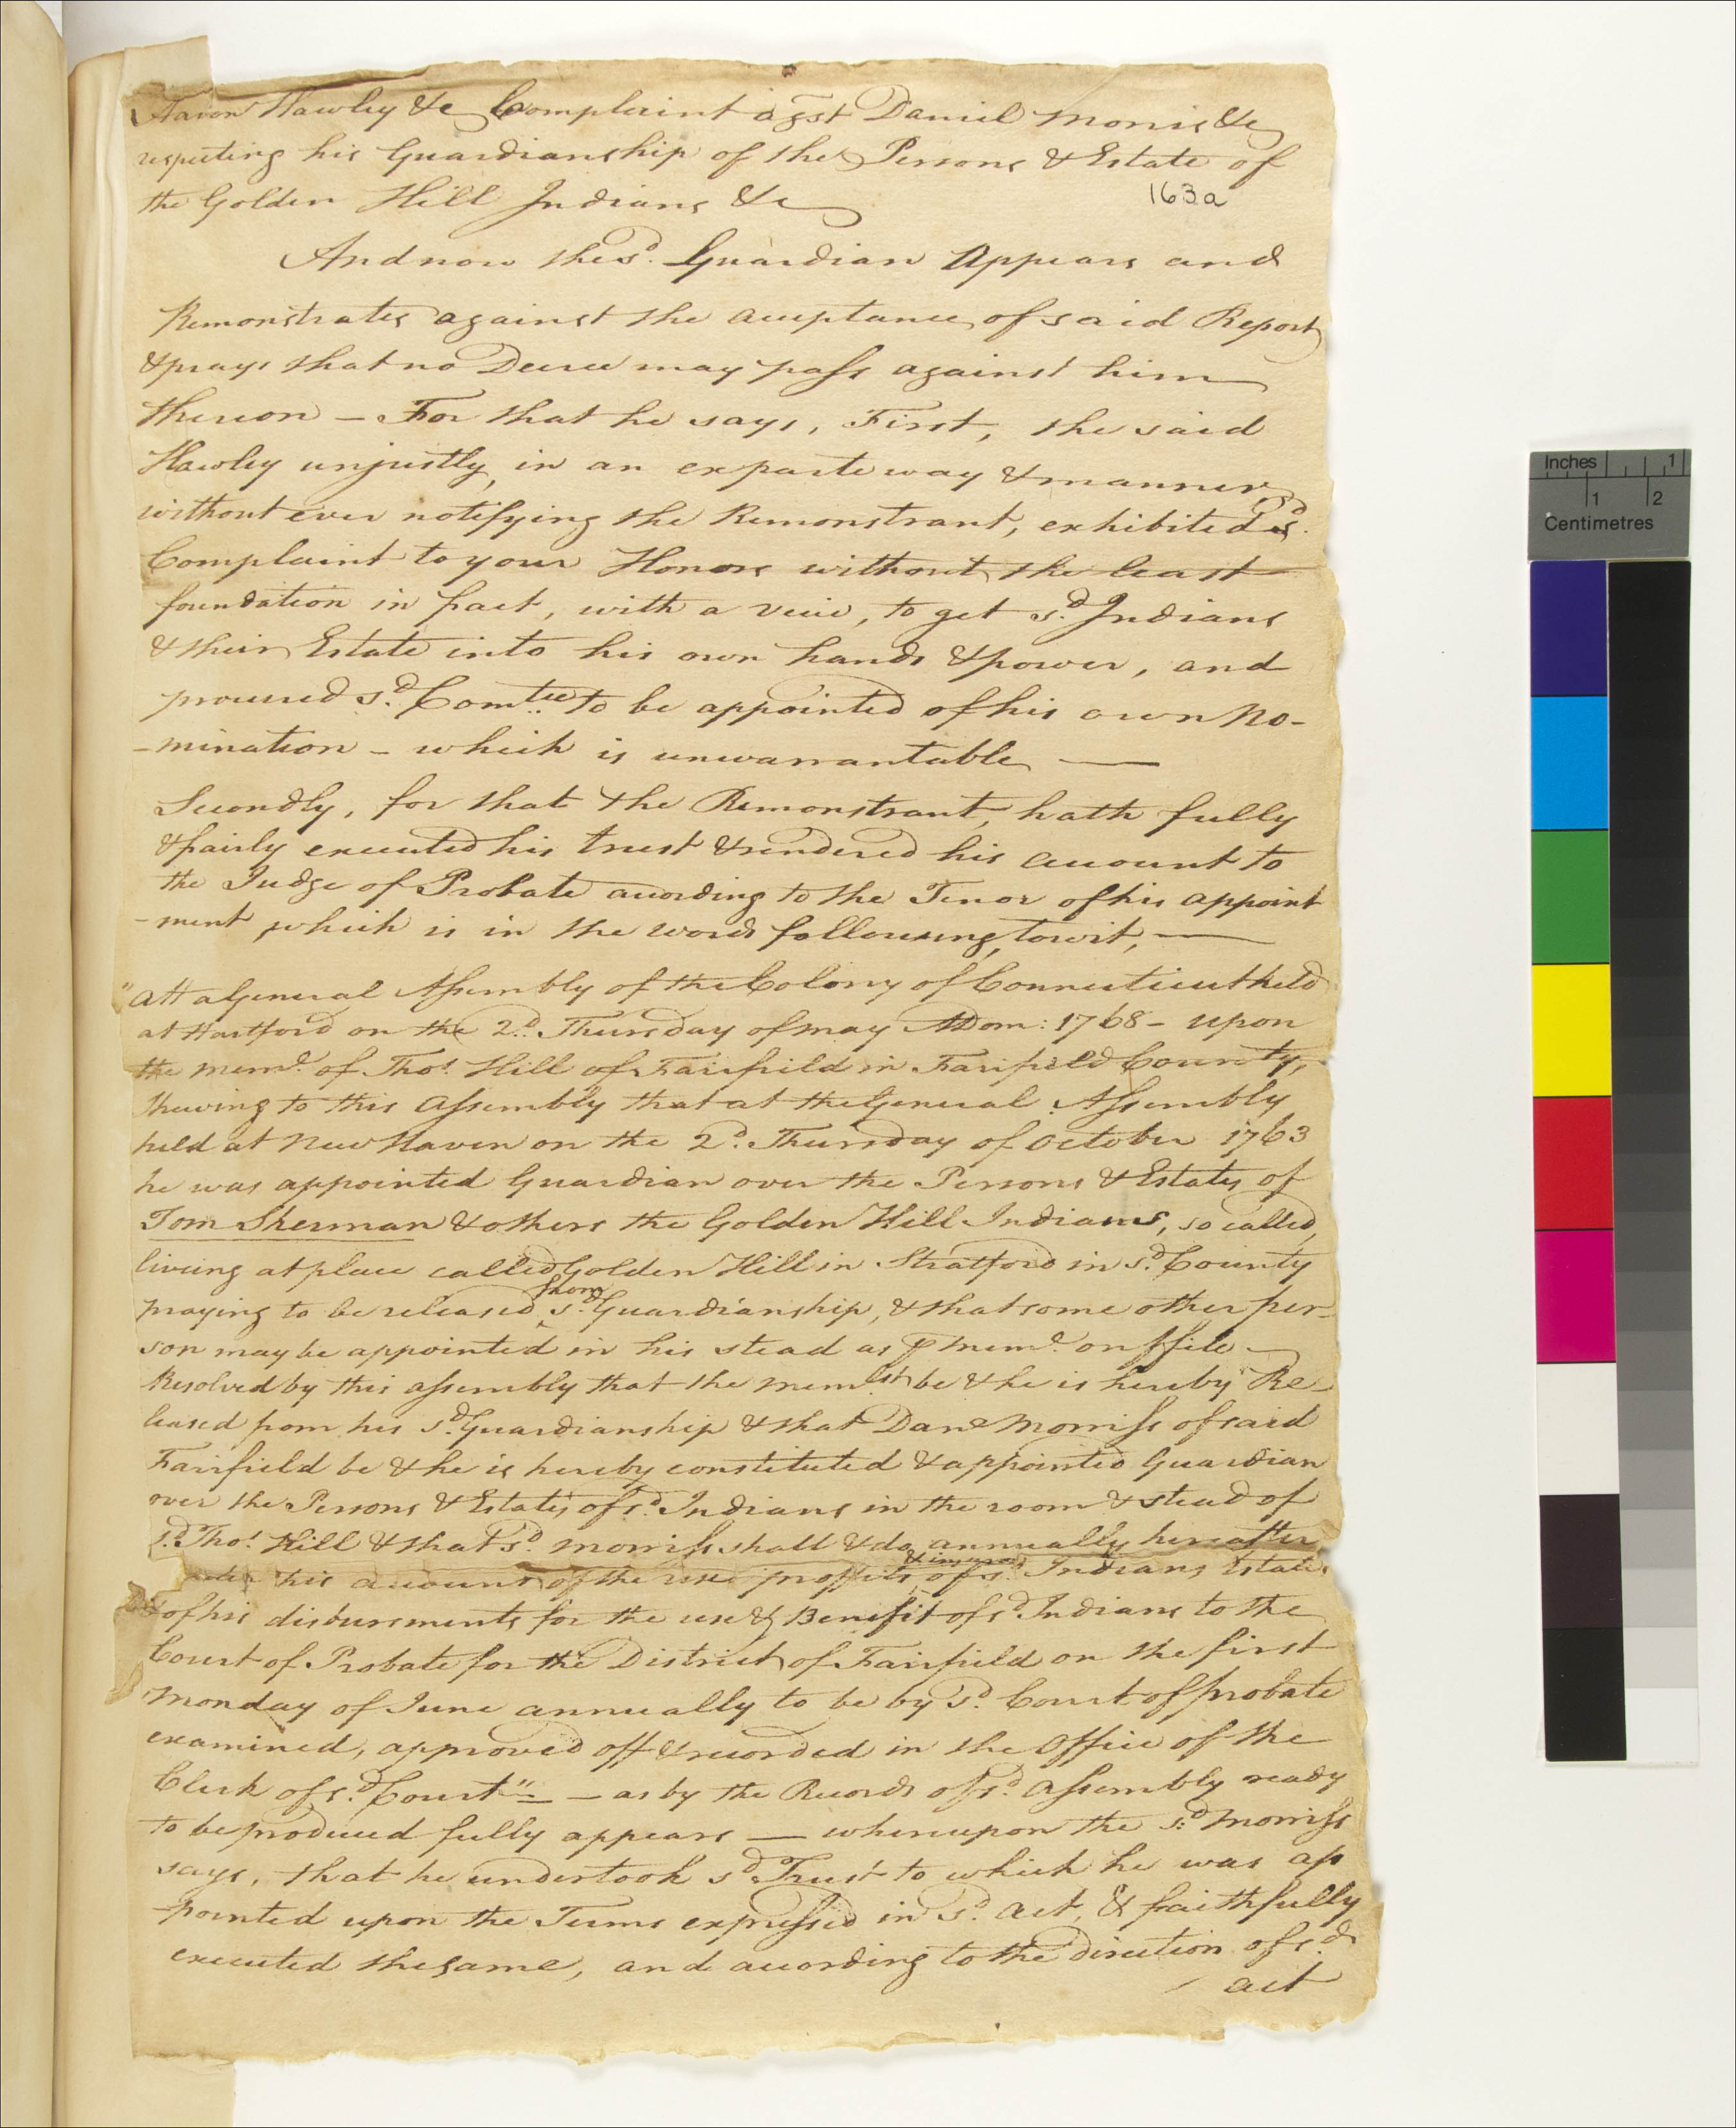 Aaron Hawley &c Complaint agst Daniel Morris &c
respecting his Guardianship of the Persons & Estate of
the Golden Hill Indians &c
163a
And now the sd. Guardian Appears and
Remonstrates against the acceptance of said Report
& prays that no Decree may pass against him
thereon – For that he says, First, the said
Hawley unjustly, in an exparte way & manner,
without ever notifying the Remonstrant, exhibited sd.
Complaint to your Honors without the least
foundation in fact, with a veiw, to get sd. Indians
& their Estate into his own hands & power, and
procured sd. Comtee. to be appointed of his own No-
-mination – which is unwarrantable —
Secondly, for that the Remonstrant, hath fully
& fairly executed his trust & rendered his account to
the Judge of Probate according to the Tenor of his appoint
-ment which is in the words following, towit, —
"Att a General Assembly of the Colony of Connecticut held
at Hartford on the 2d. Thursday of may ADom: 1768 – upon
the meml. of Thos. Hill of Fairfield in Fairfield County,
shewing to this Assembly that at the General Assembly
held at New Haven on the 2d. Thursday of October 1763
he was appointed Guardian over the Persons & Estates of
Tom Sherman & others the Golden Hill Indians, so called,
liveing at place called Golden Hill in Stratford in sd. County
praying to be released from sd. Guardianship, & that some other per-
son may be appointed in his stead as ⅌ meml. on ffile —
Resolved by this assembly that the memlst be & he is hereby Re
leased from his sd. Guardianship & that Danl Morriss of said
Fairfield be & he is hereby constituted & appointed Guardian
over the Persons & Estates of sd. Indians in the room & stead of
sd. Thos. Hill & that sd. Morriss shall & do annually hereafter
his account of the use proffits & of sd. Indians Estate
& of his disbursments for the use & Benefit of sd. Indians to the
Court of Probate for the District of Fairfield on the first
Monday of June annually to be by sd. Court of probate
examined, approved off & recorded in the Office of the
Clerk of sd. Court" – – as by the Records of sd. Assembly ready
to be produced fully appears — whereupon the sd. Morriss
says, that he undertook sd. Trust to which he was ap
-pointed upon the Terms expressed in sd. Act, & faithfully
executed the same, and according to the direction of sd.
act
Inches 1
1 2
Centimetres